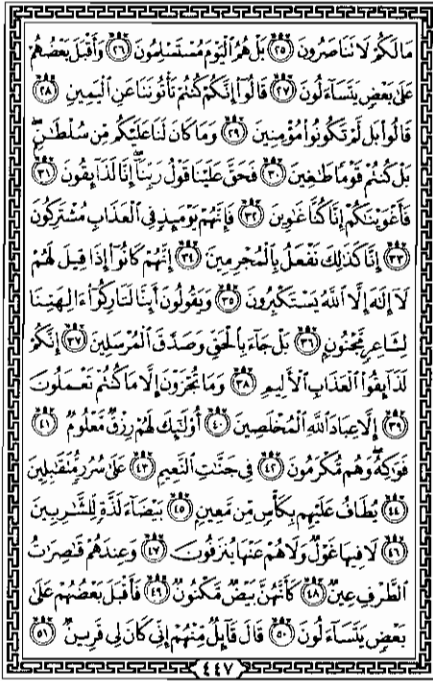 مَا لَكُمْ لَا تَنَاصَرُونَ ﴿٢٥﴾ بَلْ هُمُ الْيَوْمَ مُسْتَسْلِمُونَ ﴿٢٦﴾ وَأَقْبَلَ بَعْضُهُمْ
عَلَىٰ بَعْضٍ يَتَسَاءَلُونَ ﴿٢٧﴾ قَالُوا إِنَّكُمْ كُنتُمْ تَأْتُونَنَا عَنِ الْيَمِينِ ﴿٢٨﴾
قَالُوا بَل لَّمْ تَكُونُوا مُؤْمِنِينَ ﴿٢٩﴾ وَمَا كَانَ لَنَا عَلَيْكُم مِّن سُلْطَانٍ ۖ
بَلْ كُنتُمْ قَوْمًا طَاغِينَ ﴿٣٠﴾ فَحَقَّ عَلَيْنَا قَوْلُ رَبِّنَا ۖ إِنَّا لَذَائِقُونَ ﴿٣١﴾
فَأَغْوَيْنَاكُمْ إِنَّا كُنَّا غَاوِينَ ﴿٣٢﴾ فَإِنَّهُمْ يَوْمَئِذٍ فِي الْعَذَابِ مُشْتَرِكُونَ
﴿٣٣﴾ إِنَّا كَذَٰلِكَ نَفْعَلُ بِالْمُجْرِمِينَ ﴿٣٤﴾ إِنَّهُمْ كَانُوا إِذَا قِيلَ لَهُمْ
لَا إِلَٰهَ إِلَّا اللَّهُ يَسْتَكْبِرُونَ ﴿٣٥﴾ وَيَقُولُونَ أَئِنَّا لَتَارِكُو آلِهَتِنَا
لِشَاعِرٍ مَّجْنُونٍ ﴿٣٦﴾ بَلْ جَاءَ بِالْحَقِّ وَصَدَّقَ الْمُرْسَلِينَ ﴿٣٧﴾ إِنَّكُمْ
لَذَائِقُو الْعَذَابِ الْأَلِيمِ ﴿٣٨﴾ وَمَا تُجْزَوْنَ إِلَّا مَا كُنتُمْ تَعْمَلُونَ
﴿٣٩﴾ إِلَّا عِبَادَ اللَّهِ الْمُخْلَصِينَ ﴿٤٠﴾ أُولَٰئِكَ لَهُمْ رِزْقٌ مَّعْلُومٌ ﴿٤١﴾
فَوَاكِهُ ۖ وَهُم مُّكْرَمُونَ ﴿٤٢﴾ فِي جَنَّاتِ النَّعِيمِ ﴿٤٣﴾ عَلَىٰ سُرُرٍ مُّتَقَابِلِينَ
﴿٤٤﴾ يُطَافُ عَلَيْهِم بِكَأْسٍ مِّن مَّعِينٍ ﴿٤٥﴾ بَيْضَاءَ لَذَّةٍ لِّلشَّارِبِينَ
﴿٤٦﴾ لَا فِيهَا غَوْلٌ وَلَا هُمْ عَنْهَا يُنزَفُونَ ﴿٤٧﴾ وَعِندَهُمْ قَاصِرَاتُ
الطَّرْفِ عِينٌ ﴿٤٨﴾ كَأَنَّهُنَّ بَيْضٌ مَّكْنُونٌ ﴿٤٩﴾ فَأَقْبَلَ بَعْضُهُمْ عَلَىٰ
بَعْضٍ يَتَسَاءَلُونَ ﴿٥٠﴾ قَالَ قَائِلٌ مِّنْهُمْ إِنِّي كَانَ لِي قَرِينٌ ﴿٥١﴾
٤٤٧